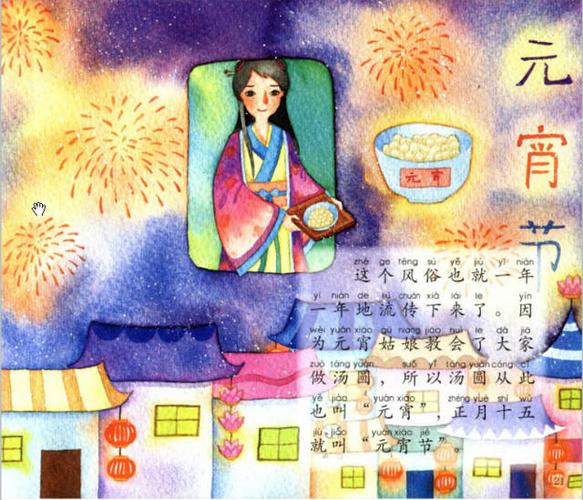 元宵节
元宵
zhè ge fēng sú yě jiù yī nián
这个风俗也就一年
yī nián de liú chuán xià lái le yīn
一年地流传下来了。因
wèi yuán xiāo gū niang jiāo huì le dà jiā
为元宵姑娘教会了大家
zuò tāng yuán suǒ yǐ tāng yuán cóng cǐ
做汤圆，所以汤圆从此
yě jiào yuán xiāo zhēng yuè shí wǔ
也叫“元宵”，正月十五
jiù jiào yuán xiāo jié
就叫“元宵节”。
21